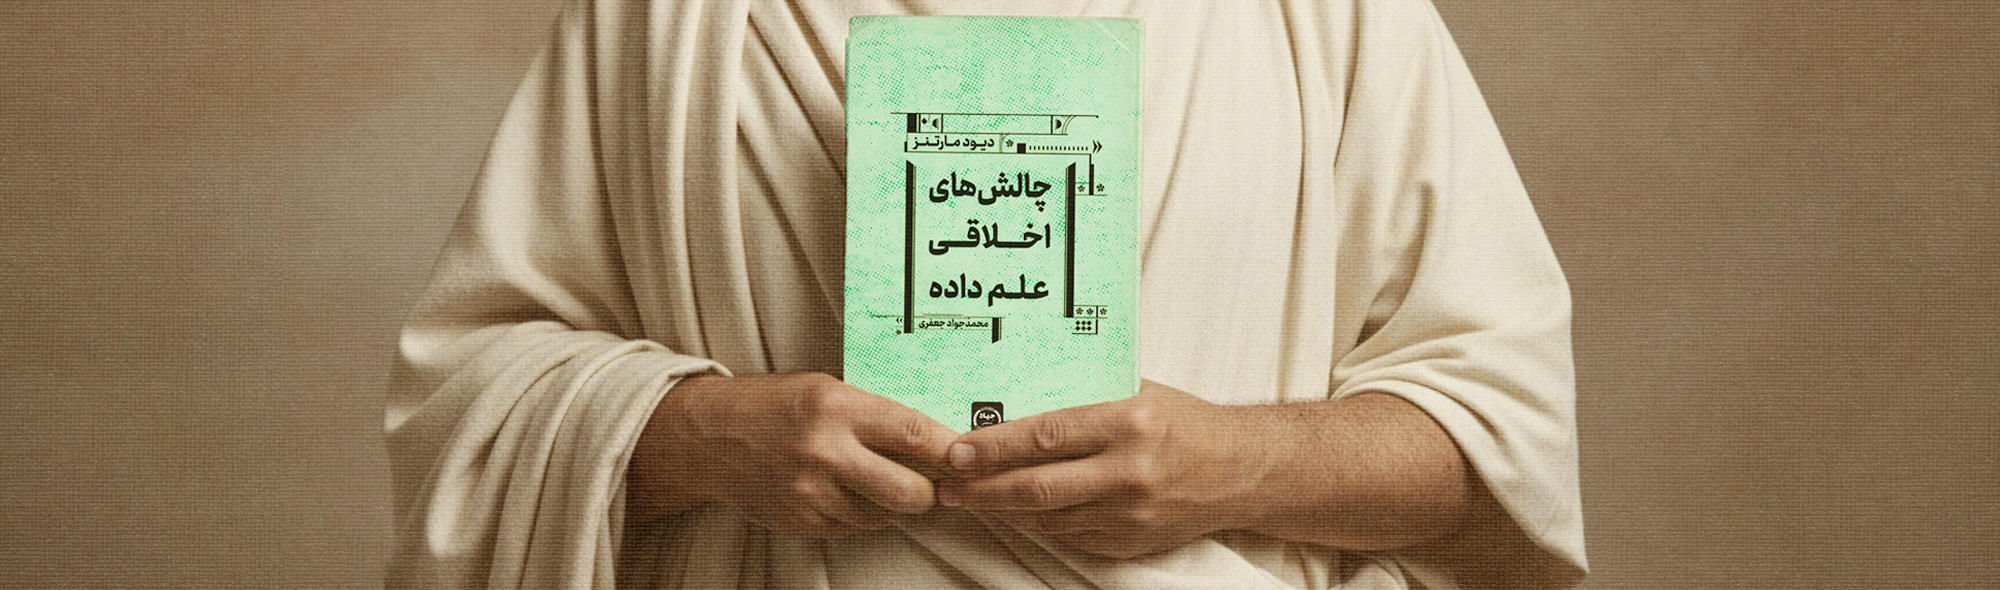 دیود مارتنز
چالش‌های
اخلاقی
علم داده
محمدجواد جعفری
جهاد